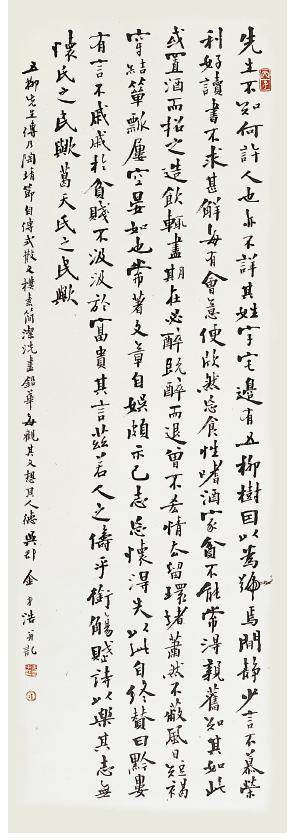 先生不知何許人也亦不詳其姓字宅邊有五柳樹因以為號焉閒靜少言不慕榮
利好讀書不求甚解每有會意便欣然忘食性嗜酒家貧不能常得親舊知其如此
或置酒而招之造飲輒盡期在必醉既醉而退曾不吝情去留環堵蕭然不蔽風日短褐
穿結簞瓢屢空晏如也常著文章自娛頗示己志忘懷得失以此自終贊曰黔婁
有言不戚戚於貧賤不汲汲於富貴其言茲若人之儔乎銜觴賦詩以樂其志無
懷氏之民歟葛天氏之民歟
五柳先生傳乃陶靖節自傳式散文樸素簡潔洗盡鉛華每觀其文想其人德 金 浩